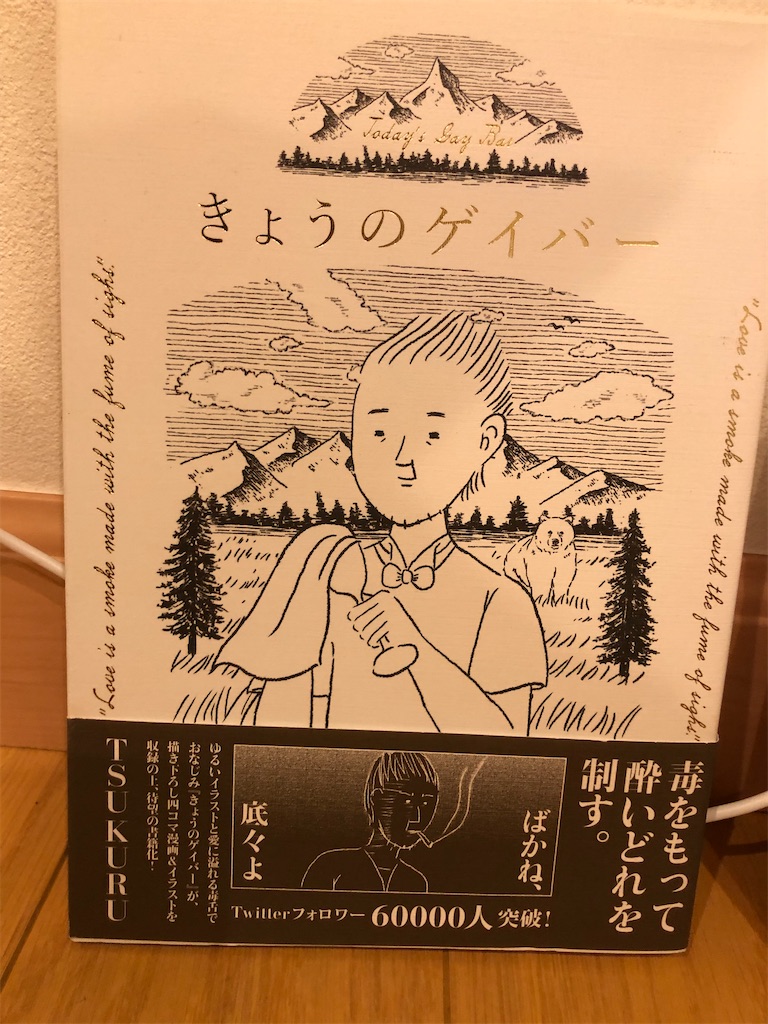 Today's Gay Bar
きょうのゲイバー
"Love is a smoke made with the fume of sighs."
"Love is a smoke made with the fume of sighs."
毒をもって
酔いどれを
制す。
ばかね、
底々よ
ゆるいイラストと愛に溢れる毒舌で
おなじみ『きょうのゲイバー』が、
描き下ろし四コマ漫画&イラストを
収録の上、待望の書籍化!
TSUKURU
Twitterフォロワー60000人突破!